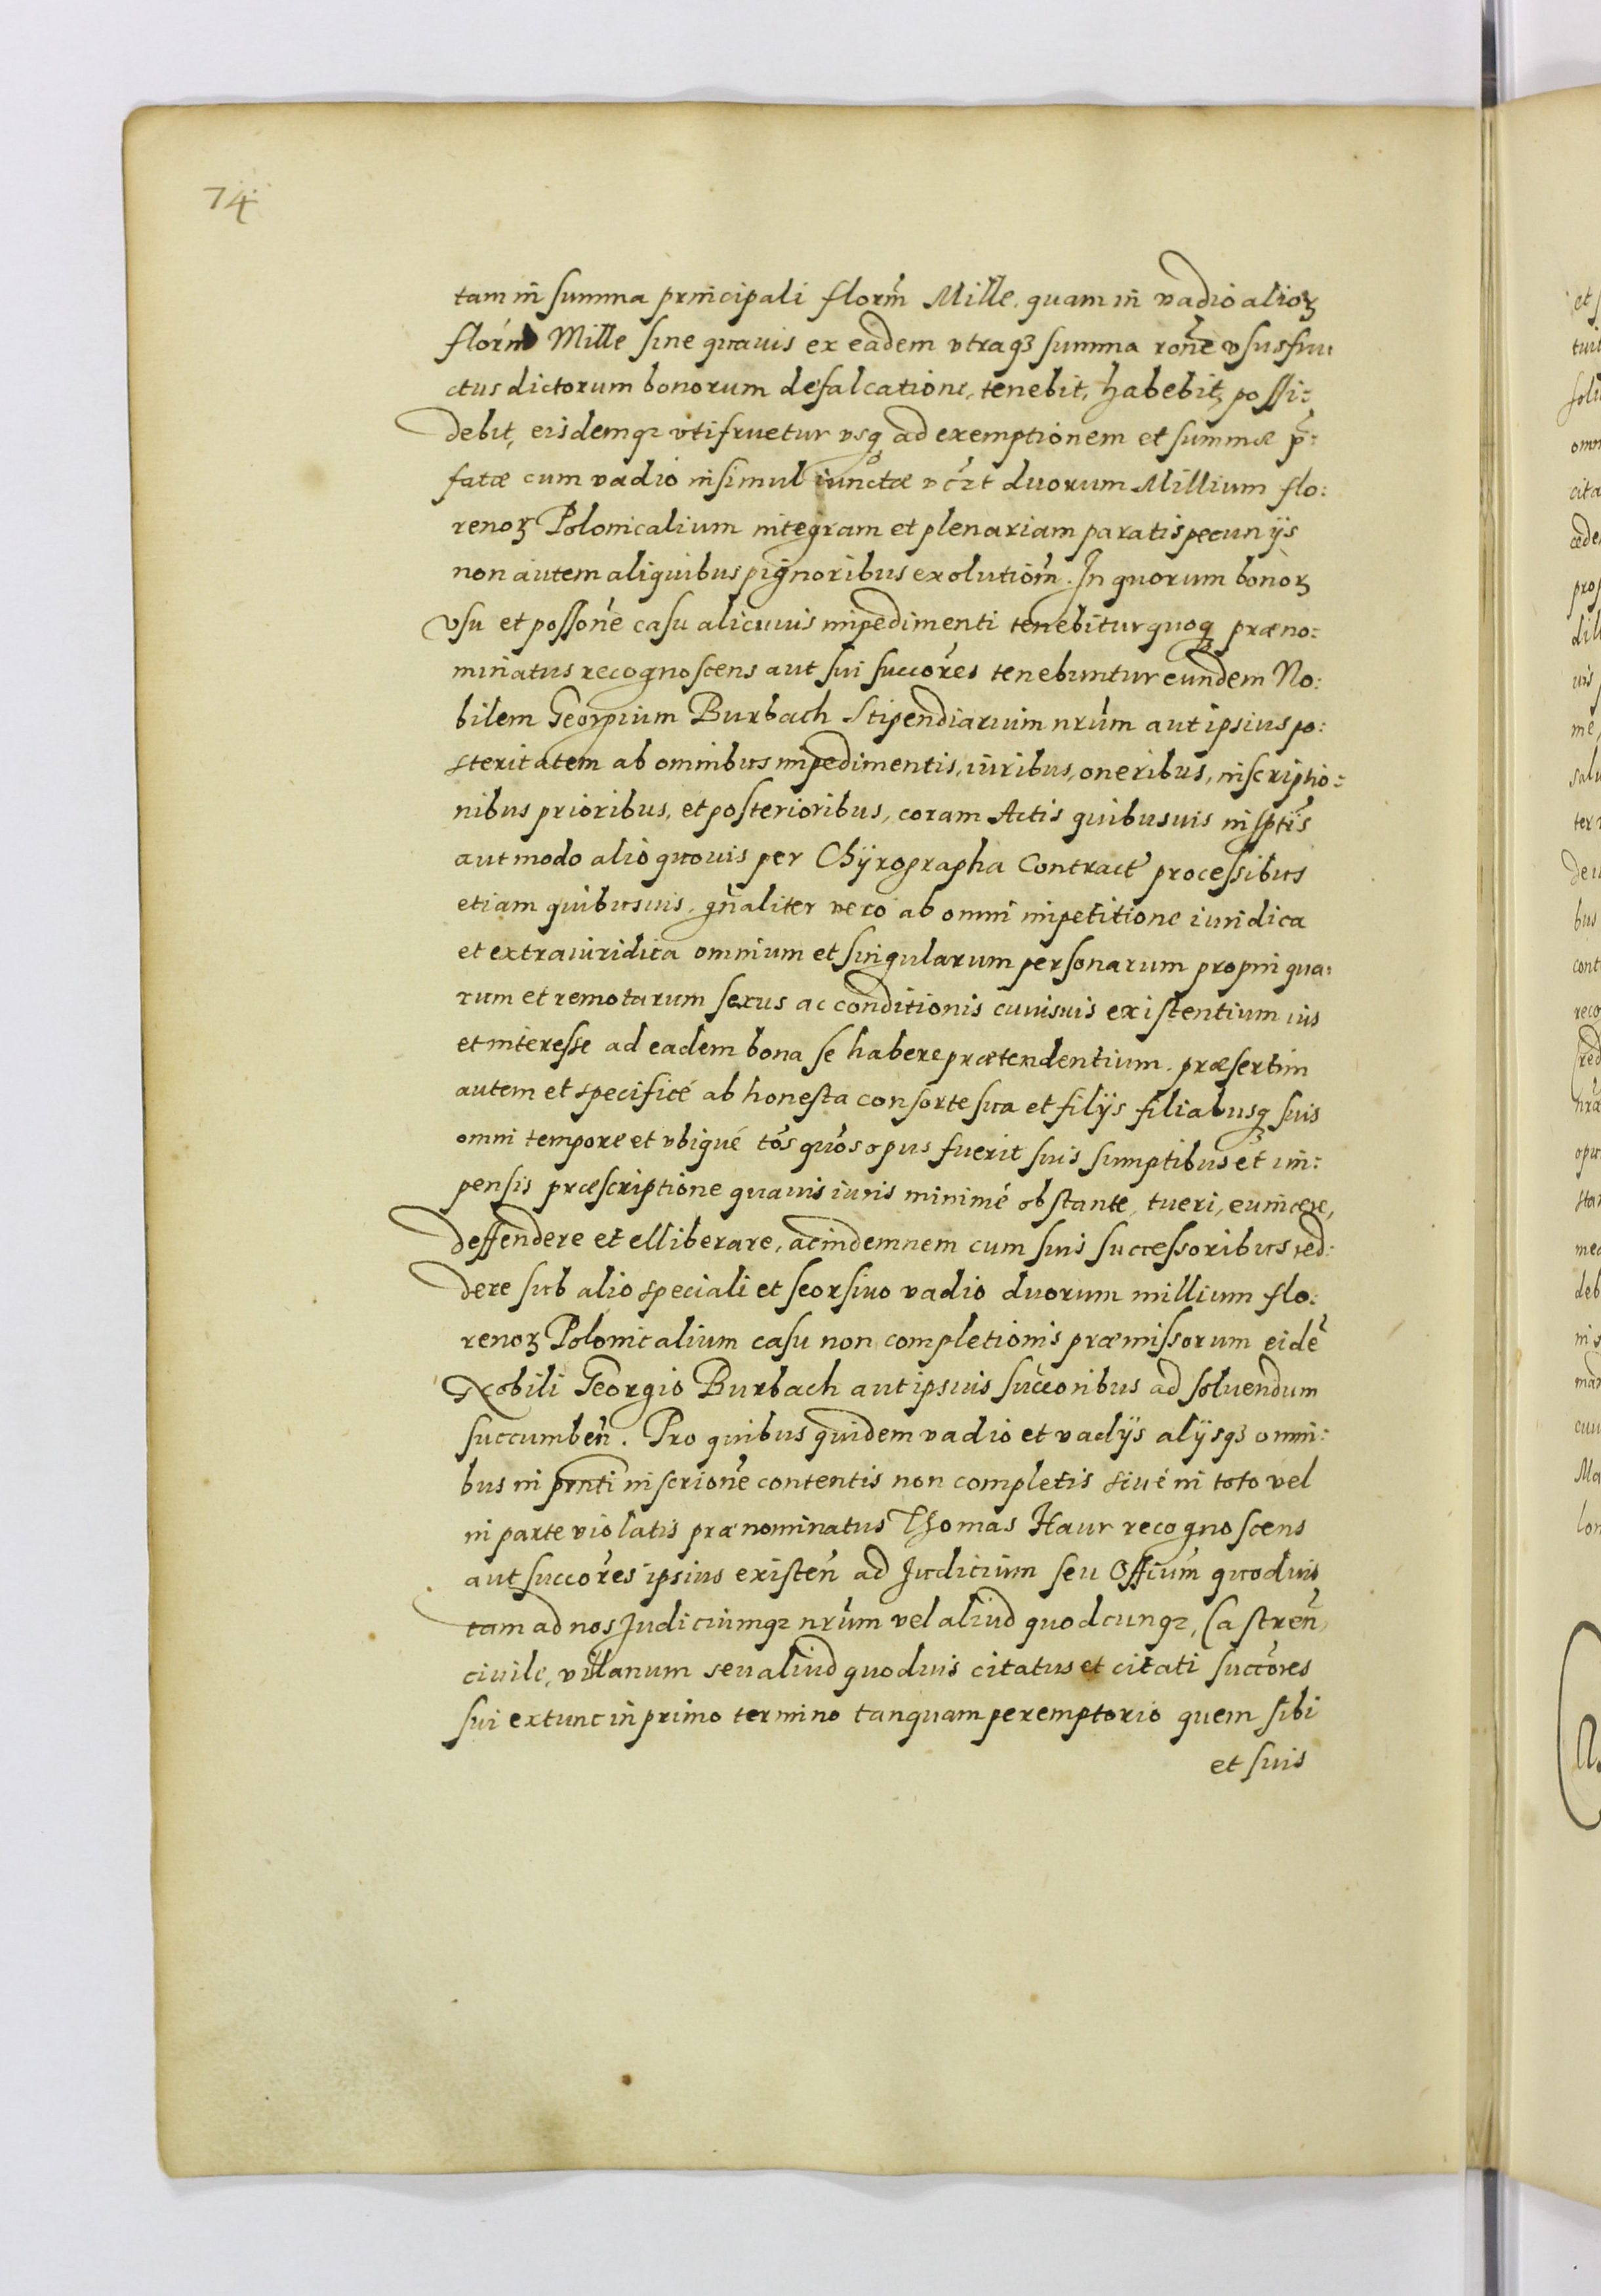 74
tam in summa principali florm̃ Mille, quam in vadio alioꝝ
florm̃ Mille sine quauis ex eadem vtraqꝫ summa rõne vsusfru
ctus dictorum bonorum defalcatione, tenebit, habebit, possi:
debit, eisdemqꝫ vtifruetur vsqꝫ ad exemptionem et summæ p̃:
fatæ cum vadio insimul iunctæ vcz̃t duorum Millium flo:
renoꝝ Polonicalium integram et plenariam paratis pecunijs
non autem aliquibus pignoribus exolutiom̃. In quorum bonoꝝ
vsu et possõne casu alicuius impedimenti tenebitur quoqꝫ præno:
minatus recognoscens aut sui succõres tenebuntur eundem No:
bilem Georgium Burbach Stipendiarium nr̃um aut ipsius po:
steritatem ab omnibus impedimentis, iuribus, oneribus, inscriptio:
nibus prioribus, et posterioribus, coram Actis quibusuis insptis̃
aut modo alio quouis per Chÿrographa Contract᾽ processibus
etiam quibusuis. gñaliter vero ab omni impetitione iuridica
et extraiuridica omnium et singularum personarum propinqua:
rum et remotarum sexus ac conditionis cuiusuis existentium ius
et interesse ad eadem bona se habere prætendentium. præsertim
autem et specificé ab honesta consorte sua et filijs filiabusqꝫ suis
omni tempore et vbiqué tõs quõs opus fuerit suis sumptibus et im:
pensis præscriptione quauis iuris minimé obstante, tueri, euincere,
deffendere et elliberare, ac indemnem cum suis successoribus red:
dere sub alio speciali et seorsiuo vadio duorum millium flo:
renoꝝ Polonicalium casu non completionis præmissorum eidẽ
Nobili Georgio Burbach aut ipsius succõribus ad soluendum
succumbeñ. Pro quibus quidem vadio et vadijs alijsqꝫ omni:
bus in prñti inscriõne contentis non completis siué in toto vel
in parte violatis prænominatus Thomas Haur recognoscens
aut succõres ipsius existeñ ad Judicium seu Officiũm quoduis
tam ad nos Judiciumqꝫ nr̃um vel aliud quodcunqꝫ, Castreñ,
ciuile, villanum seu aliud quoduis citatus et citati succõres
sui extunc in primo termino tanquam peremptorio quem sibi
et suis